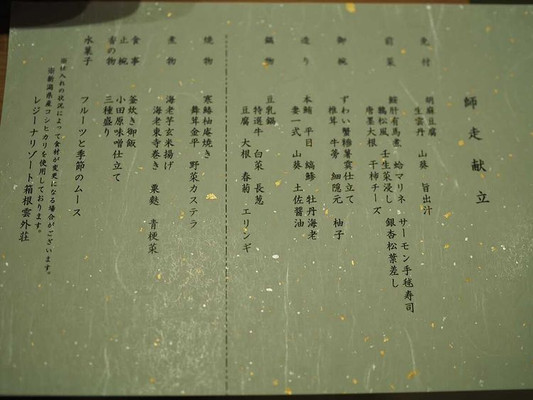 師走献立
先付
胡麻豆腐
生雲丹 山葵 旨出汁
前菜
鮟肝有馬煮 蛤マリネ サーモン手毬寿司
鴨松風 壬生菜浸し 銀杏松葉差し
唐墨大根 干柿チーズ
御椀
ずわい蟹糝薯霙仕立て
椎茸 牛蒡 細隠元 柚子
造り
本鮪 平目 縞鯵 牡丹海老
妻一式 山葵 土佐醤油
鍋物
豆乳鍋
特選牛 白菜 長葱
豆腐 大根 春菊 エリンギ
焼物
寒鰆柚庵焼き
舞茸金平 野菜カステラ
煮物
海老芋玄米揚げ
海老東寺巻き 粟麩 青梗菜
食事
釜炊き御飯
止椀
小田原味噌仕立て
香の物
三種盛り
水菓子
フルーツと季節のムース
※仕入れの状況によって食材が変更になる場合がございます。
※新潟県産コシヒカリを使用しております。
レジーナリゾート箱根雲外荘